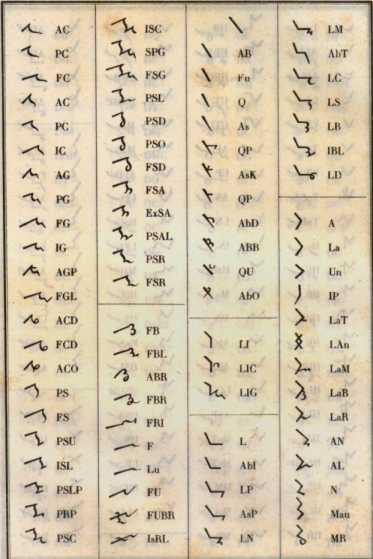 AC
PC
FC
AC
PC
IC
AG
PG
FG
IG
AGP
FGL
ACD
FCD
ACO
PS
FS
PSU
ISL
PSLP
PRP
PSC
ISC
SPG
FSG
PSL
PSD
PSO
FSD
FSA
ExSA
PSAL
PSR
FSR
FB
FBL
ABR
FBR
FRI
F
Lu
FU
FUBR
IsRL
AB
Fu
Q
As
QP
AsK
QP
AbD
ABB
QU
AbO
LI
LIC
LIG
L
AbI
LP
AsP
LN
LM
AbT
LC
LS
LB
IBL
LD
A
La
Un
IP
LaT
LAn
LaM
LaB
LaR
AN
AL
N
Mau
MR